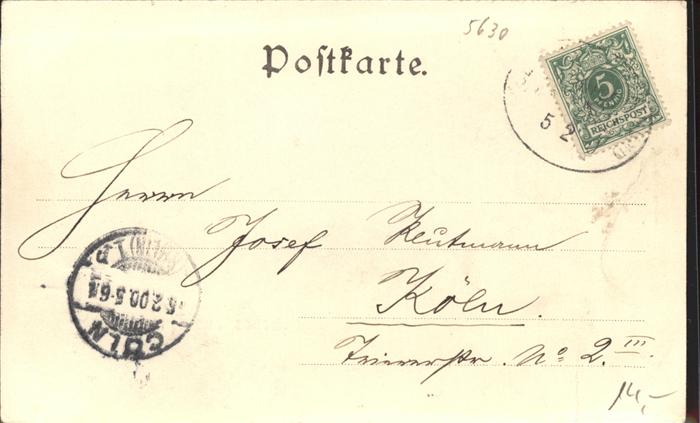 5630
Postkarte.
5
PFENNIG
REICHSPOST
5 2
Herrn
Josef Reutmann
Köln.
Triererstr. No 2. III.
CÖLN
5.2.00.5-6
14,-